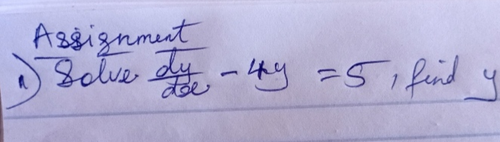 Assignment
1) Solve dy/dx - 4y = 5, find y